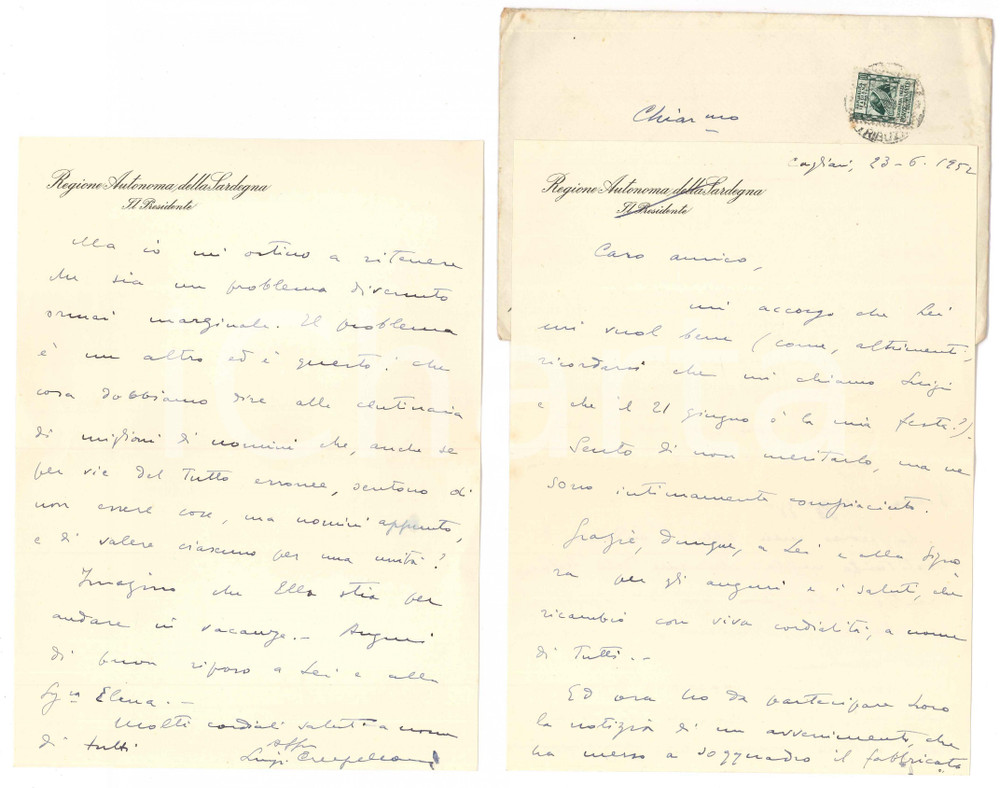 Chiar.mo
Cagliari, 23-6-1952
Regione Autonoma della Sardegna
Il Presidente
Caro amico,
mi accorgo che Lei
mi vuol bene (come, altrimenti,
ricordarsi che mi chiamo Luigi
e che il 21 giugno è la mia festa?).
Sento di non meritarlo, ma ne
sono intimamente compiaciuto.
Grazie, dunque, a Lei e alla Signo
ra per gli auguri e i saluti, che
ricambio con viva cordialità, a nome
di Tutti.-
Ed ora ho da partecipare Loro
la notizia di un avvenimento, che
ha messo a soqquadro il fabbricato
Regione Autonoma della Sardegna
Il Presidente
Ma io mi ostino a ritenere
che sia un problema divenuto
ormai marginale. Il problema
è un altro ed è questo: che
cosa dobbiamo dire alle centinaia
di milioni di uomini che, anche se
per vie del Tutto erronee, sentono di
non essere cose, ma uomini appunto,
e di valere ciascuno per una unità?
Imagino che Ella stia per
andare in vacanza.- Auguri
di buon riposo a Lei e alla
Sig.ra Elena.-
Molti cordiali saluti a nome
di tutti
aff.
Luigi Crespellani